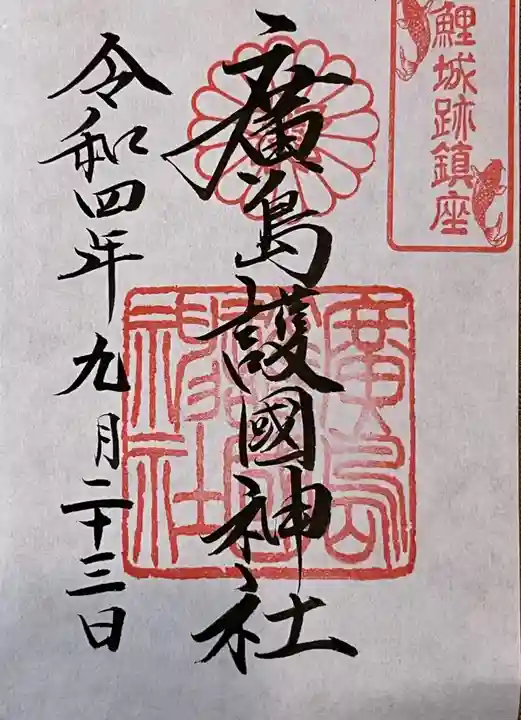 鯉城跡鎮座
廣島護國神社
廣島護國神社
令和四年九月二十三日